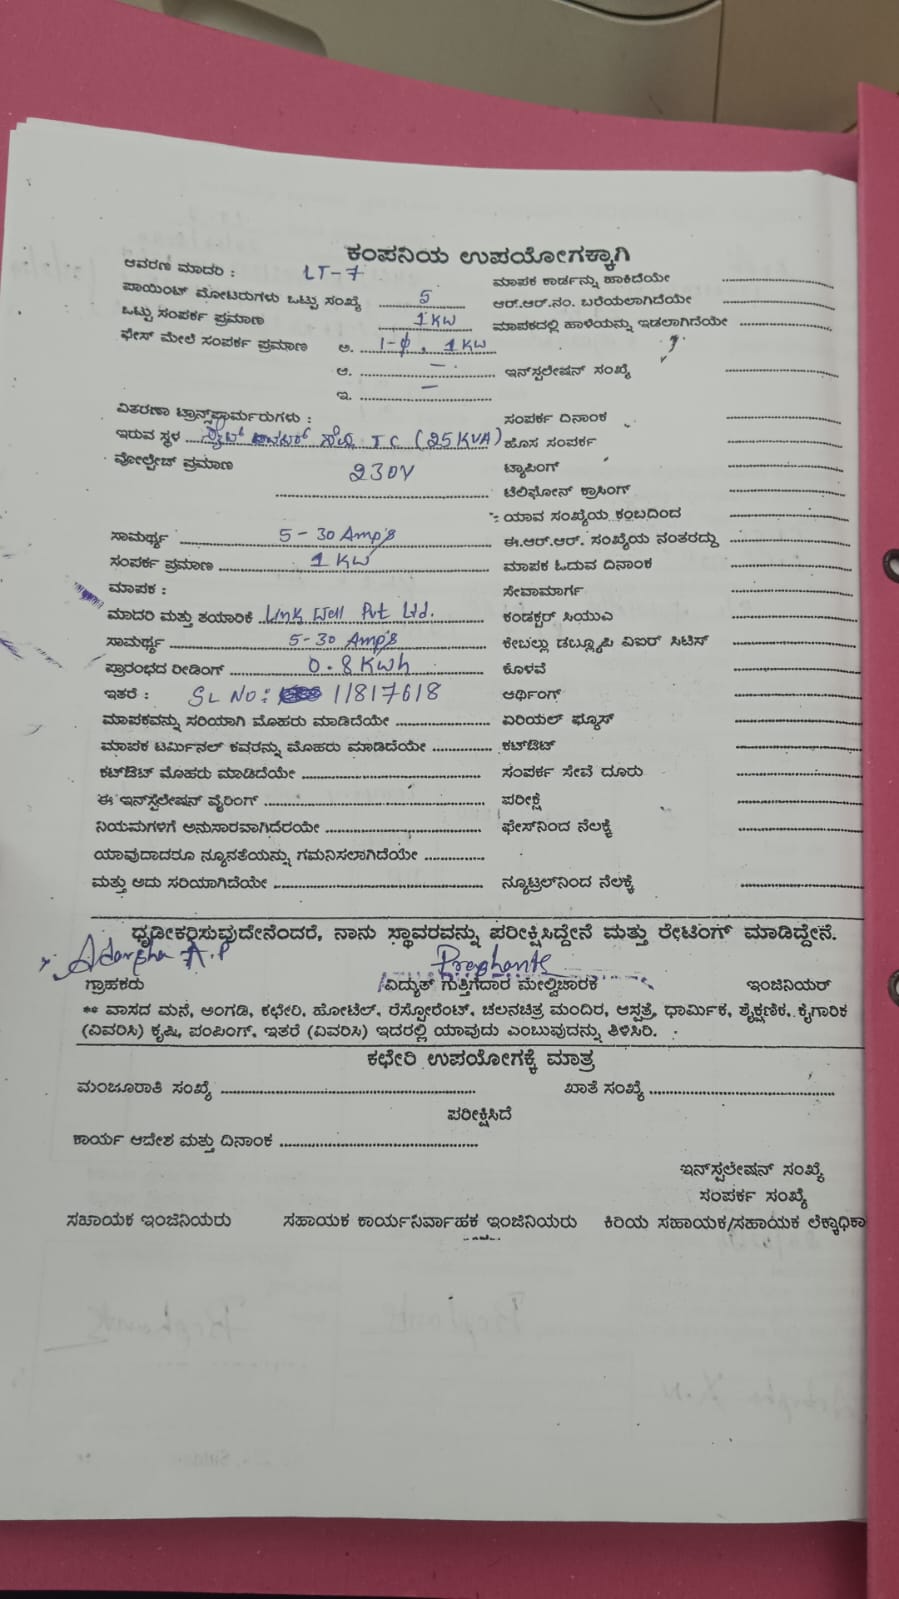 ಕಂಪನಿಯ ಉಪಯೋಗಕ್ಕಾಗಿ
ಆವರಣ ಮಾದರಿ : LT-7
ಮಾಪಕ ಕಾರ್ಡನ್ನು ಹಾಕಿದೆಯೇ
ಪಾಯಿಂಟ್ ಮೋಟರುಗಳು ಒಟ್ಟು ಸಂಖ್ಯೆ 5
ಆರ್.ಆರ್.ನಂ. ಬರೆಯಲಾಗಿದೆಯೇ
ಒಟ್ಟು ಸಂಪರ್ಕ ಪ್ರಮಾಣ 1 KW
ಮಾಪಕದಲ್ಲಿ ಹಾಳೆಯನ್ನು ಇಡಲಾಗಿದೆಯೇ
ಫೇಸ್ ಮೇಲೆ ಸಂಪರ್ಕ ಪ್ರಮಾಣ ಅ. 1-ϕ, 1 KW
ಆ. –
ಇನ್‌ಸ್ಟಲೇಷನ್ ಸಂಖ್ಯೆ
ಇ. –
ವಿತರಣಾ ಟ್ರಾನ್ಸ್‌ಫಾರ್ಮರುಗಳು :
ಸಂಪರ್ಕ ದಿನಾಂಕ
ಇರುವ ಸ್ಥಳ TC (25 KVA)
ಹೊಸ ಸಂಪರ್ಕ
ವೋಲ್ಟೇಜ್ ಪ್ರಮಾಣ 230V
ಟ್ಯಾಪಿಂಗ್
ಟೆಲಿಫೋನ್ ಕ್ರಾಸಿಂಗ್
ಯಾವ ಸಂಖ್ಯೆಯ ಕಂಬದಿಂದ
ಸಾಮರ್ಥ್ಯ 5-30 Amp's
ಈ.ಆರ್.ಆರ್. ಸಂಖ್ಯೆಯ ನಂತರದ್ದು
ಸಂಪರ್ಕ ಪ್ರಮಾಣ 1 KW
ಮಾಪಕ ಓದುವ ದಿನಾಂಕ
ಮಾಪಕ :
ಸೇವಾಮಾರ್ಗ
ಮಾದರಿ ಮತ್ತು ತಯಾರಿಕೆ Link Well Pvt Ltd.
ಕಂಡಕ್ಟರ್ ಸಿಯುಎ
ಸಾಮರ್ಥ್ಯ 5-30 Amp's
ಕೇಬಲ್ಲು ಡಬ್ಲ್ಯೂಪಿ ವಿಐರ್ ಸಿಟಿಸ್
ಪ್ರಾರಂಭದ ರೀಡಿಂಗ್ 0.8 Kwh
ಕೊಳವೆ
ಇತರೆ : SL NO: 11817618
ಆರ್ಥಿಂಗ್
ಮಾಪಕವನ್ನು ಸರಿಯಾಗಿ ಮೊಹರು ಮಾಡಿದೆಯೇ
ಏರಿಯಲ್ ಫ್ಯೂಸ್
ಮಾಪಕ ಟರ್ಮಿನಲ್ ಕವರನ್ನು ಮೊಹರು ಮಾಡಿದೆಯೇ
ಕಟ್‌ಔಟ್
ಕಟ್‌ಔಟ್ ಮೊಹರು ಮಾಡಿದೆಯೇ
ಸಂಪರ್ಕ ಸೇವೆ ದೂರು
ಈ ಇನ್‌ಸ್ಟಲೇಷನ್ ವೈರಿಂಗ್
ಪರೀಕ್ಷೆ
ನಿಯಮಗಳಿಗೆ ಅನುಸಾರವಾಗಿದೆರಯೇ
ಫೇಸ್‌ನಿಂದ ನೆಲಕ್ಕೆ
ಯಾವುದಾದರೂ ನ್ಯೂನತೆಯನ್ನು ಗಮನಿಸಲಾಗಿದೆಯೇ
ಮತ್ತು ಅದು ಸರಿಯಾಗಿದೆಯೇ
ನ್ಯೂಟ್ರಲ್‌ನಿಂದ ನೆಲಕ್ಕೆ
ಧೃಡೀಕರಿಸುವುದೇನೆಂದರೆ, ನಾನು ಸ್ಥಾವರವನ್ನು ಪರೀಕ್ಷಿಸಿದ್ದೇನೆ ಮತ್ತು ರೇಟಿಂಗ್ ಮಾಡಿದ್ದೇನೆ.
Adarsha A.P
ಗ್ರಾಹಕರು
ವಿದ್ಯುತ್ ಗುತ್ತಿಗೆದಾರ ಮೇಲ್ವಿಚಾರಕ
ಇಂಜಿನಿಯರ್
** ವಾಸದ ಮನೆ, ಅಂಗಡಿ, ಕಛೇರಿ, ಹೋಟೆಲ್, ರೆಸ್ಟೋರೆಂಟ್, ಚಲನಚಿತ್ರ ಮಂದಿರ, ಆಸ್ಪತ್ರೆ, ಧಾರ್ಮಿಕ, ಶೈಕ್ಷಣಿಕ, ಕೈಗಾರಿಕ
(ವಿವರಿಸಿ) ಕೃಷಿ, ಪಂಪಿಂಗ್, ಇತರೆ (ವಿವರಿಸಿ) ಇದರಲ್ಲಿ ಯಾವುದು ಎಂಬುವುದನ್ನು ತಿಳಿಸಿರಿ.
ಕಛೇರಿ ಉಪಯೋಗಕ್ಕೆ ಮಾತ್ರ
ಮಂಜೂರಾತಿ ಸಂಖ್ಯೆ
ಖಾತೆ ಸಂಖ್ಯೆ
ಪರೀಕ್ಷಿಸಿದೆ
ಕಾರ್ಯ ಆದೇಶ ಮತ್ತು ದಿನಾಂಕ
ಇನ್‌ಸ್ಟಲೇಷನ್ ಸಂಖ್ಯೆ
ಸಂಪರ್ಕ ಸಂಖ್ಯೆ
ಸಹಾಯಕ ಇಂಜಿನಿಯರು
ಸಹಾಯಕ ಕಾರ್ಯನಿರ್ವಾಹಕ ಇಂಜಿನಿಯರು
ಕಿರಿಯ ಸಹಾಯಕ/ಸಹಾಯಕ ಲೆಕ್ಕಾಧಿಕಾ